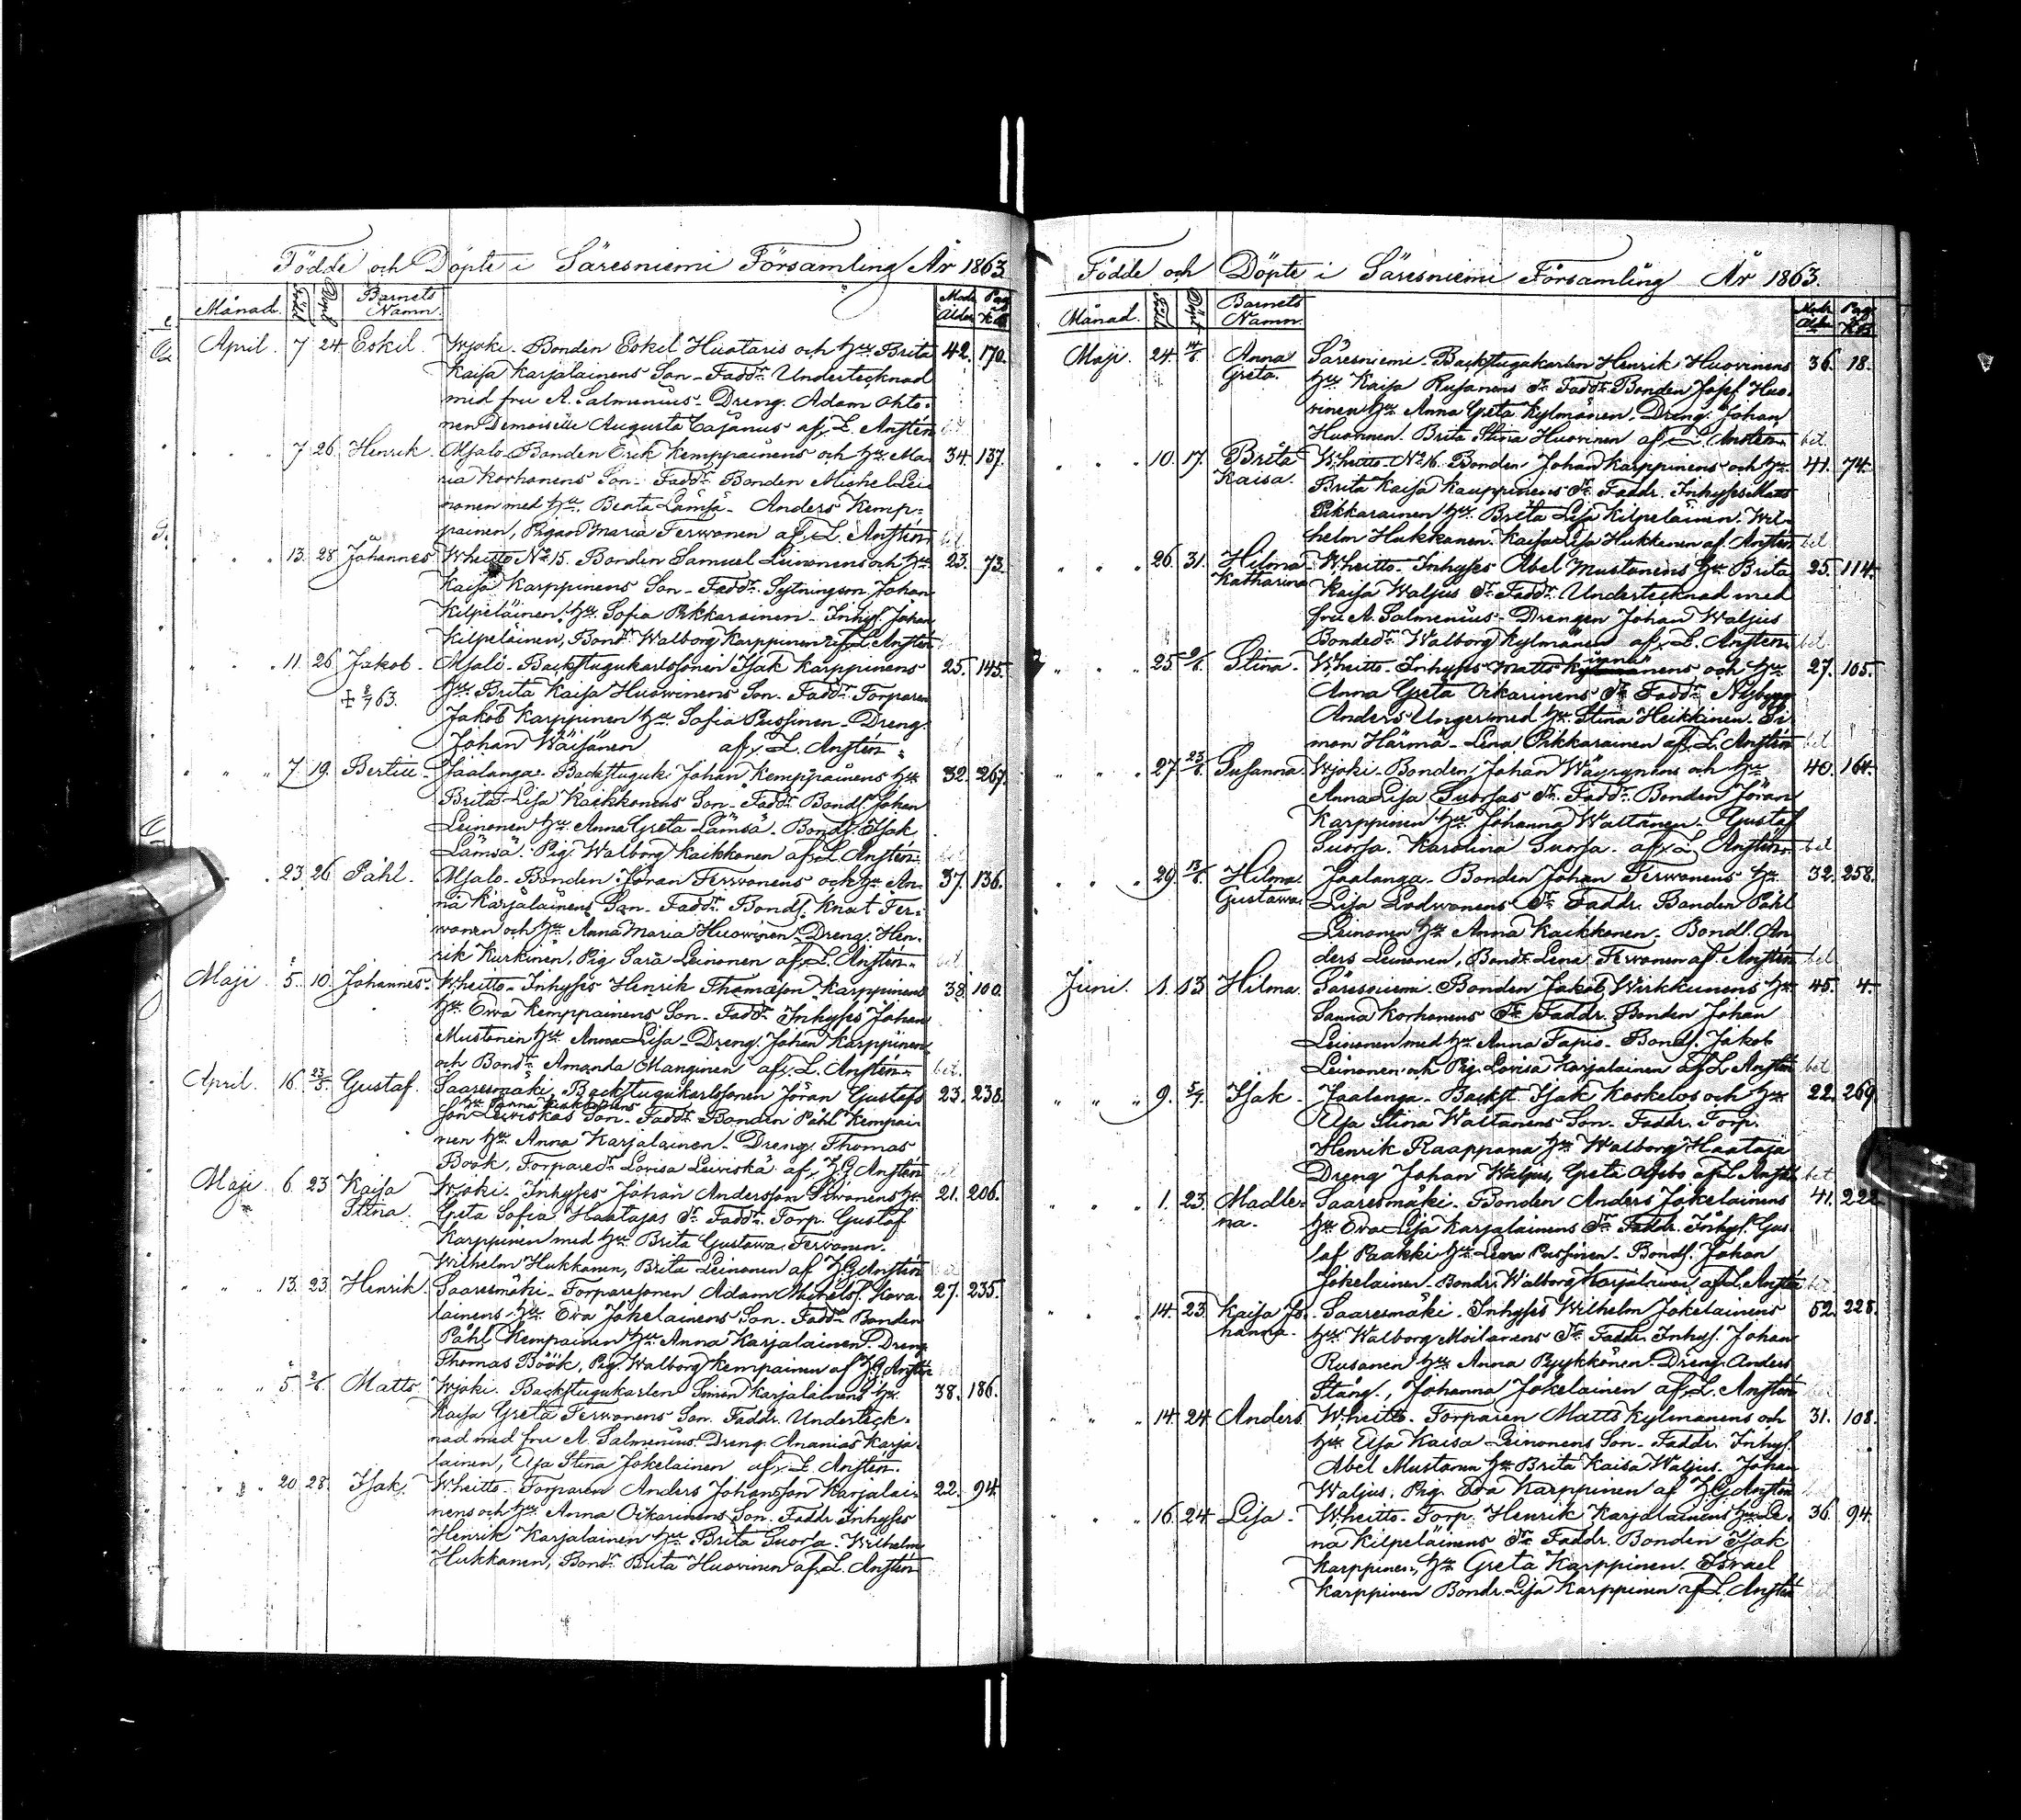 Födde och Döpte i Säresniemi Församling År 1863
Månad. Född Döpt Barnets Namn. Mods Ålder Pag. K.B.
April. 7 24 Eskil. Wjoki. Bonden Eskil Huotaris och hu Brita 42. 170.
Kaisa Karjalainens Son. Faddr. Undertecknad
med fru A. Salmenius. Dreng. Adam Ohto-
nen Demoiselle Augusta Cajanus af L. Anstén
7 26 Henrik. Mjalo. Bonden Erik Kemppainens och hu Ma- 34. 137.
ria Korhonens Son. Faddr. Bonden Michel Lei-
nonen med hu. Beata Lämsä. Anders Kemp-
painen, Pigan Maria Terwonen af L. Anstén
13. 28 Johannes Wheitto No 15. Bonden Samuel Leinonens och hu 23. 73.
Kaisa Karppinens Son. Faddr. Sytningson Johan
Kilpeläinen, hu. Sofia Pikkarainen. Inhys. Johan
Kilpeläinen, Bondr. Walborg Karppinen af L. Anstén
11. 26 Jakob. Mjalo. Backstugukarlssonen Isak Karppinens 25. 145.
+ 8/7 63. hu. Brita Kaisa Huowinens Son. Faddr. Torparen
Jakob Karppinen hu Sofia Pussinen. Dreng.
Johan Wäisänen af L. Anstén
7. 19. Bertill. Jaalanga. Backstuguk. Johan Kemppainens hu 32. 267.
Brita Lisa Kaikkonens Son. Faddr. Bonds. Johan
Leinonen hu. Anna Greta Lämsä. Bonds. Isak
Lämsä. Pig. Walborg Kaikkonen af L. Anstén
23. 26 Påhl. Mjalo. Bonden Jöran Terwonens och hu An- 37. 136.
na Karjalainens Son. Faddr. Bonds. Knut Ter-
wonen och hu Anna Maria Huowinen, Dreng. Hen-
rik Kurkinen, Pig Sara Leinonen af L. Anstén
Maji. 5. 10. Johannes. Wheitto. Inhyses Henrik Thomasson Karppinens 38. 100.
hu. Ewa Kemppainens Son. Faddr. Inhyses Johan
Mustonen hu Anna Lisa. Dreng. Johan Karppinen
och Bondr. Amanda Manginen af L. Anstén bet.
April. 16. 23/5. Gustaf. Saaresmäki. Backstugukarlssonen Jöran Gustafs 23. 238.
son Leiwiskäs Son. Faddr. Bonden Påhl Kempai-
nen hu. Anna Karjalainen. Dreng. Thomas
Böök, Torparedr. Lovisa Leiwiskä af J.G. Anstén
Maji. 6. 23 Kaisa Wjoki. Inhyses Johan Andersson hu 21. 206.
Stina. Greta Sofia Haatajas Dr. Faddr. Torp. Gustaf
Karppinen med hu. Brita Gustawa Terwonen.
Wilhelm Hukkanen, Brita Leinonen af J.G. Anstén
13. 23 Henrik. Saaresmäki. Torparesonen Adam Michels. Kova- 27. 235.
lainens hu. Ewa Jokelainens Son. Faddr. Bonden
Påhl Kempainen hu Anna Karjalainen. Dreng
Thomas Böök, Pig. Walborg Kempainen af J.G. Anstén
5 2/6. Matts Wjoki. Backstugukarlen Simon Karjalainens hu. 38. 186.
Kaisa Greta Terwonens Son. Faddr. Underteck-
nad med fru A. Salmenius. Dreng. Ananias Karja-
lainen, Elsa Stina Jokelainen af L. Anstén.
20. 28. Isak. Wheitto. Torparen Anders Johansson Karjalai- 22. 94.
nens och hu Anna Oikarinens Son. Faddr. Inhyses
Henrik Karjalainen hu Brita Suorsa. Wilhelm
Hukkanen, Bondr. Brita Huowinen af L. Anstén
Födde och Döpte i Säresniemi Församling År 1863.
Månad. Född Döpt Barnets Namn. Mods Ålder Pag. K.B.
Maji. 24. 14/6. Anna Säresniemi. Backstugakarlen Henrik Huowinens 36. 18.
Greta. hu. Kaisa Rusanens Dr. Faddr. Bonden Josef Huo-
winen hu. Anna Greta Kylmänen. Dreng. Johan
Huowinen. Brita Stina Huowinen af L. Anstén bet.
10. 17. Brita Wheitto. No 16. Bonden Johan Karppinens och hu 41. 74.
Kaisa. Brita Kaisa Kauppinens Dr. Faddr. Inhyses Matts
Pikkarainen hu. Brita Lisa Kilpeläinen. Wil-
helm Hukkanen. Kaisa Lisa Hukkanen af Anstén bet
26. 31. Hilma Wheitto. Inhyses Abel Mustonens hu Brita 25. 114.
Katharina Kaisa Waljus Dr. Faddr. Undertecknad med
fru A. Salmenius. Drengen Johan Waljus
Bondedr. Walborg Kylmänen af L. Anstén bet.
25. Stina. Wheitto. Inhyses Matts och hu 27. 105.
Anna Greta Oikarinens Dr. Faddr. Nybygg.
Anders Unger med hu. Stina Heikkinen. Si-
mon Härmä. Lena Pikkarainen af L. Anstén bet
27 23/6. Susanna. Wjoki. Bonden Johan Wäyrynens och hu 40. 164.
Anna Lisa Suorsas Dr. Faddr. Bonden Jöran
Karppinen hu Johanna Waltanen. Gustaf
Suorsa. Karolina Suorsa. af L. Anstén bet.
29. 13/6. Hilma Jaalanga. Bonden Johan Terwonens hu 32. 258.
Gustawa. Lisa Lodwonens Dr. Faddr. Bonden Påhl
Leinonen hu Anna Kaikkonen. Bonds. An-
ders Leinonen, Bondr. Lena Terwonen af Anstén bet.
Juni. 1. 13. Hilma. Säresniemi. Bonden Jakob Wirkkunens hu 45. 4.
Sanna Korhonens Dr. Faddr. Bonden Johan
Leinonen med hu Anna Tapio. Bonds. Jakob
Leinonen och Pig. Lovisa Karjalainen af L. Anstén bet
9. 5/7. Isak. Jaalanga. Backst. Isak Koskelos och hu 22. 269.
Elsa Stina Waltanens Son. Faddr. Torp.
Henrik Raappana hu Walborg Haataja
Dreng Johan Waljus, Greta af L. Anstén bet
1. 23. Madle- Saaresmäki. Bonden Anders Jokelainens 41. 222
na. hu. Ewa Lisa Karjalainens Dr. Faddr. Inhys. Gus-
taf Paakki hu Lena Pussinen. Bonds. Johan
Jokelainen. Bondr. Walborg Karjalainen af L. Anstén
14. 23. Kaisa Jo- Saaresmäki. Inhyses Wilhelm Jokelainens 52. 228.
hanna. hu. Walborg Moilanens Dr. Faddr. Inhys. Johan
Rusanen hu. Anna Pyykkönen. Dreng. Anders
Stång, Johanna Jokelainen af L. Anstén
14. 24 Anders. Wheitto. Torparen Matts Kylmänens och 31. 108.
hu. Elsa Kaisa Leinonens Son. Faddr. Inhys.
Abel Mustonen hu Brita Kaisa Waljus. Johan
Waljus. Pig. Ewa Karppinen af J.G. Anstén
16. 24 Lisa. Wheitto. Torp. Henrik Karjalainens hu Le- 36. 94.
na Kilpeläinens Dr. Faddr. Bonden Isak
Karppinen, hu Greta Karppinen. Israel
Karppinen Bondr. Lisa Karppinen af L. Anstén